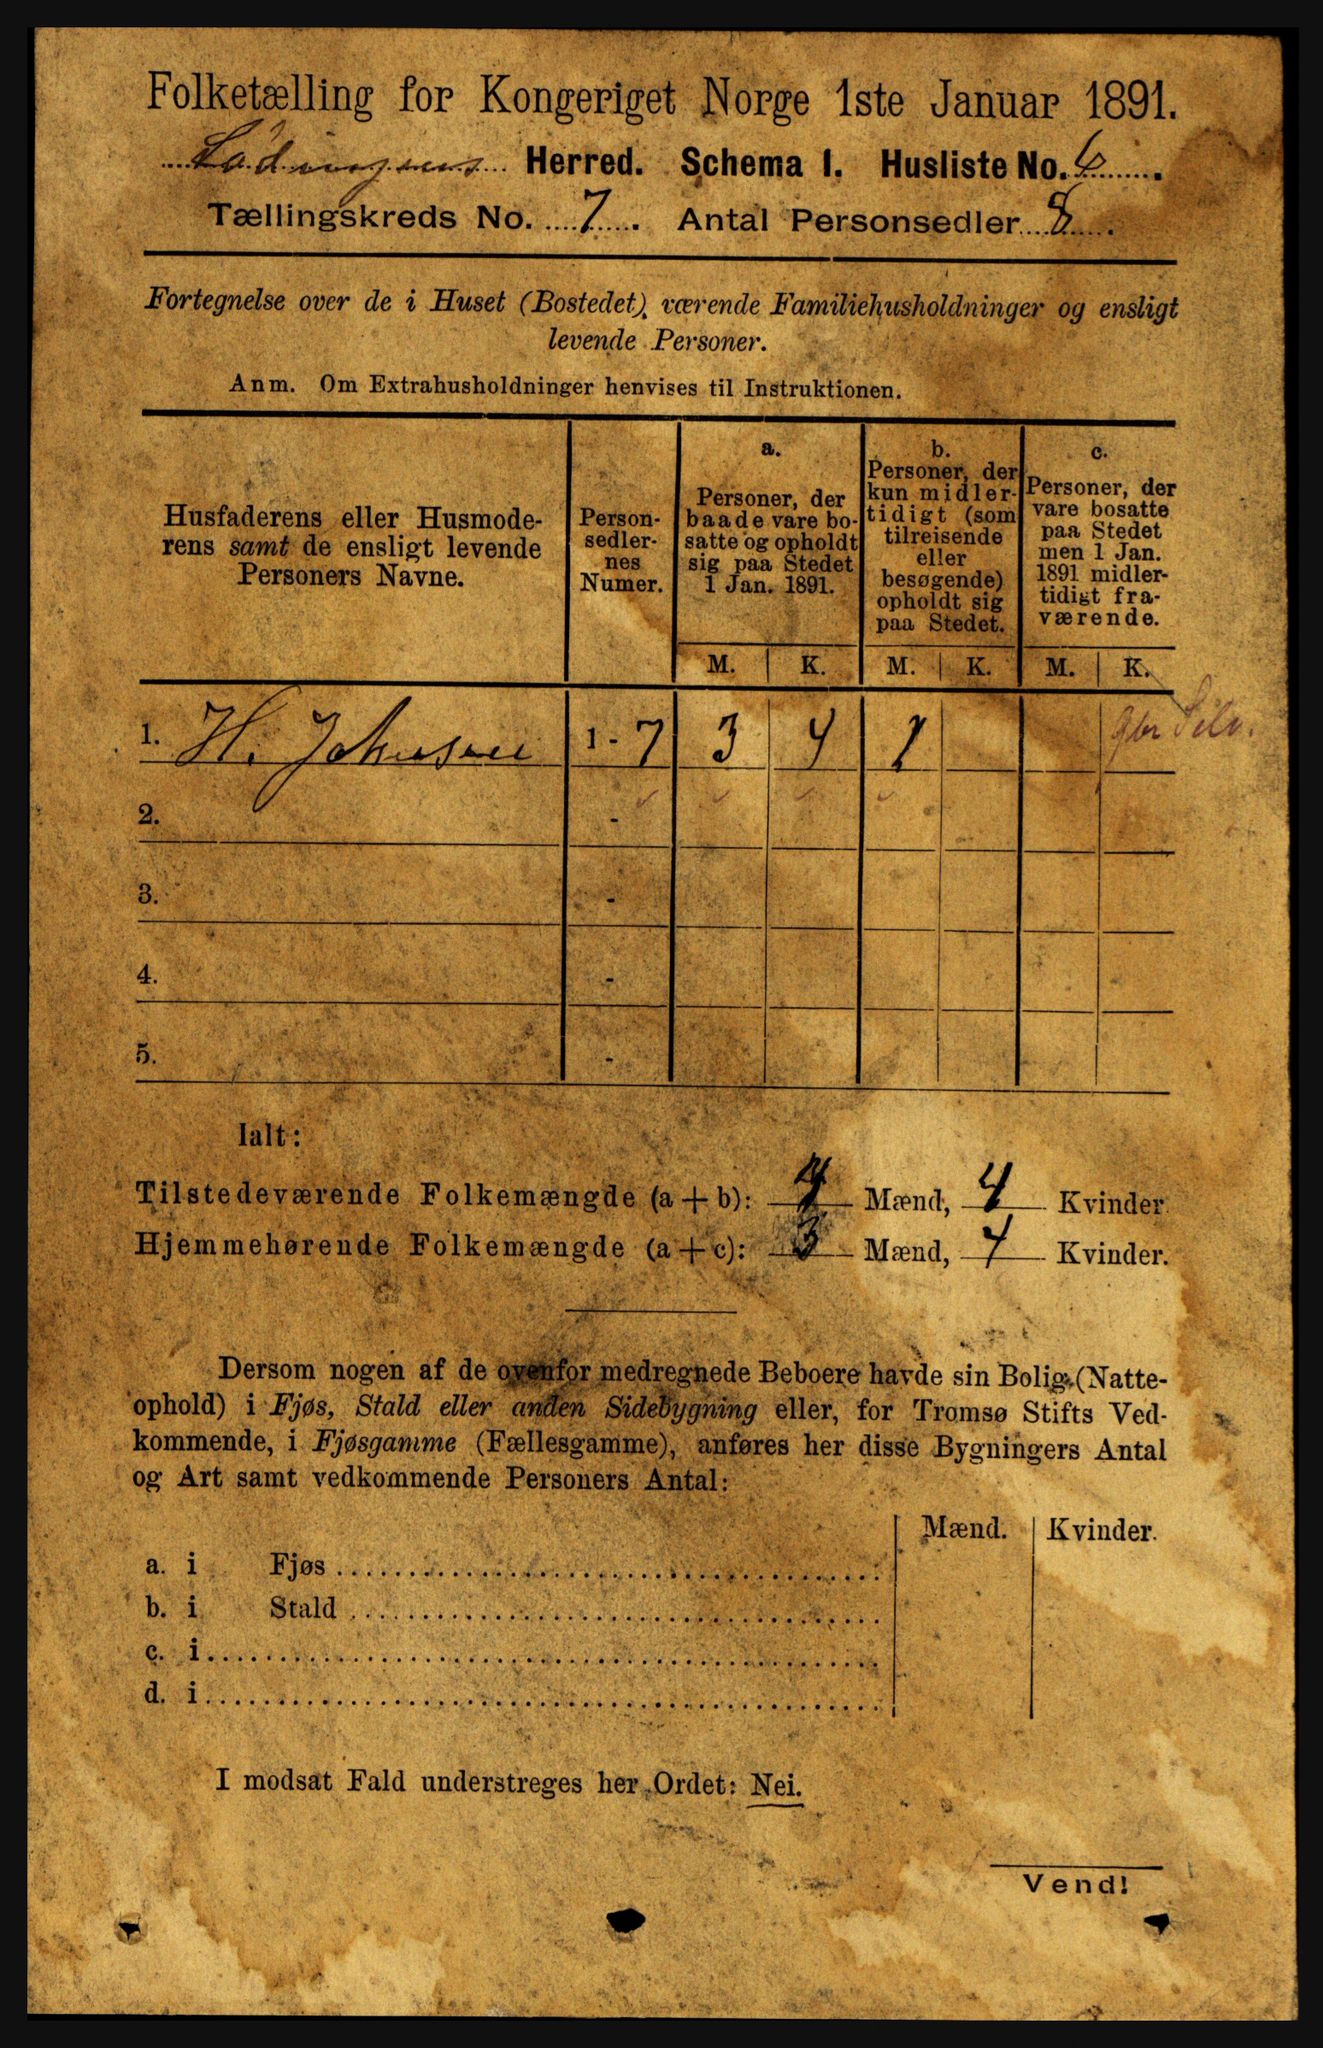 Folketælling for Kongeriget Norge 1ste Januar 1891.
Lødingens Herred. Schema 1. Husliste No. 6.
Tællingskreds No. 7. Antal Personsedler 8.
Fortegnelse over de i Huset (Bostedet) værende Familiehusholdninger og ensligt
levende Personer.
Anm. Om Extrahusholdninger henvises til Instruktionen.
Husfaderens eller Husmode-
rens samt de ensligt levende
Personers Navne.
Person-
sedler-
nes
Numer.
a.
Personer, der
baade vare bo-
satte og opholdt
sig paa Stedet
1 Jan. 1891.
b.
Personer, der
kun midler-
tidigt (som
tilreisende
eller
besøgende)
opholdt sig
paa Stedet.
c.
Personer, der
vare bosatte
paa Stedet
men 1 Jan.
1891 midler-
tidigt fra-
værende.
M. K. M. K. M. K.
1. H. Johnsen 1 - 7 3 4 1
2. -
3. -
4. -
5. -
Ialt:
Tilstedeværende Folkemængde (a + b): 4 Mænd, 4 Kvinder
Hjemmehørende Folkemængde (a + c): 3 Mænd, 4 Kvinder.
Dersom nogen af de ovenfor medregnede Beboere havde sin Bolig (Natte-
ophold) i Fjøs, Stald eller anden Sidebygning eller, for Tromsø Stifts Ved-
kommende, i Fjøsgamme (Fællesgamme), anføres her disse Bygningers Antal
og Art samt vedkommende Personers Antal:
Mænd. Kvinder.
a. i Fjøs
b. i Stald
c. i
d. i
I modsat Fald understreges her Ordet: Nei.
Vend!